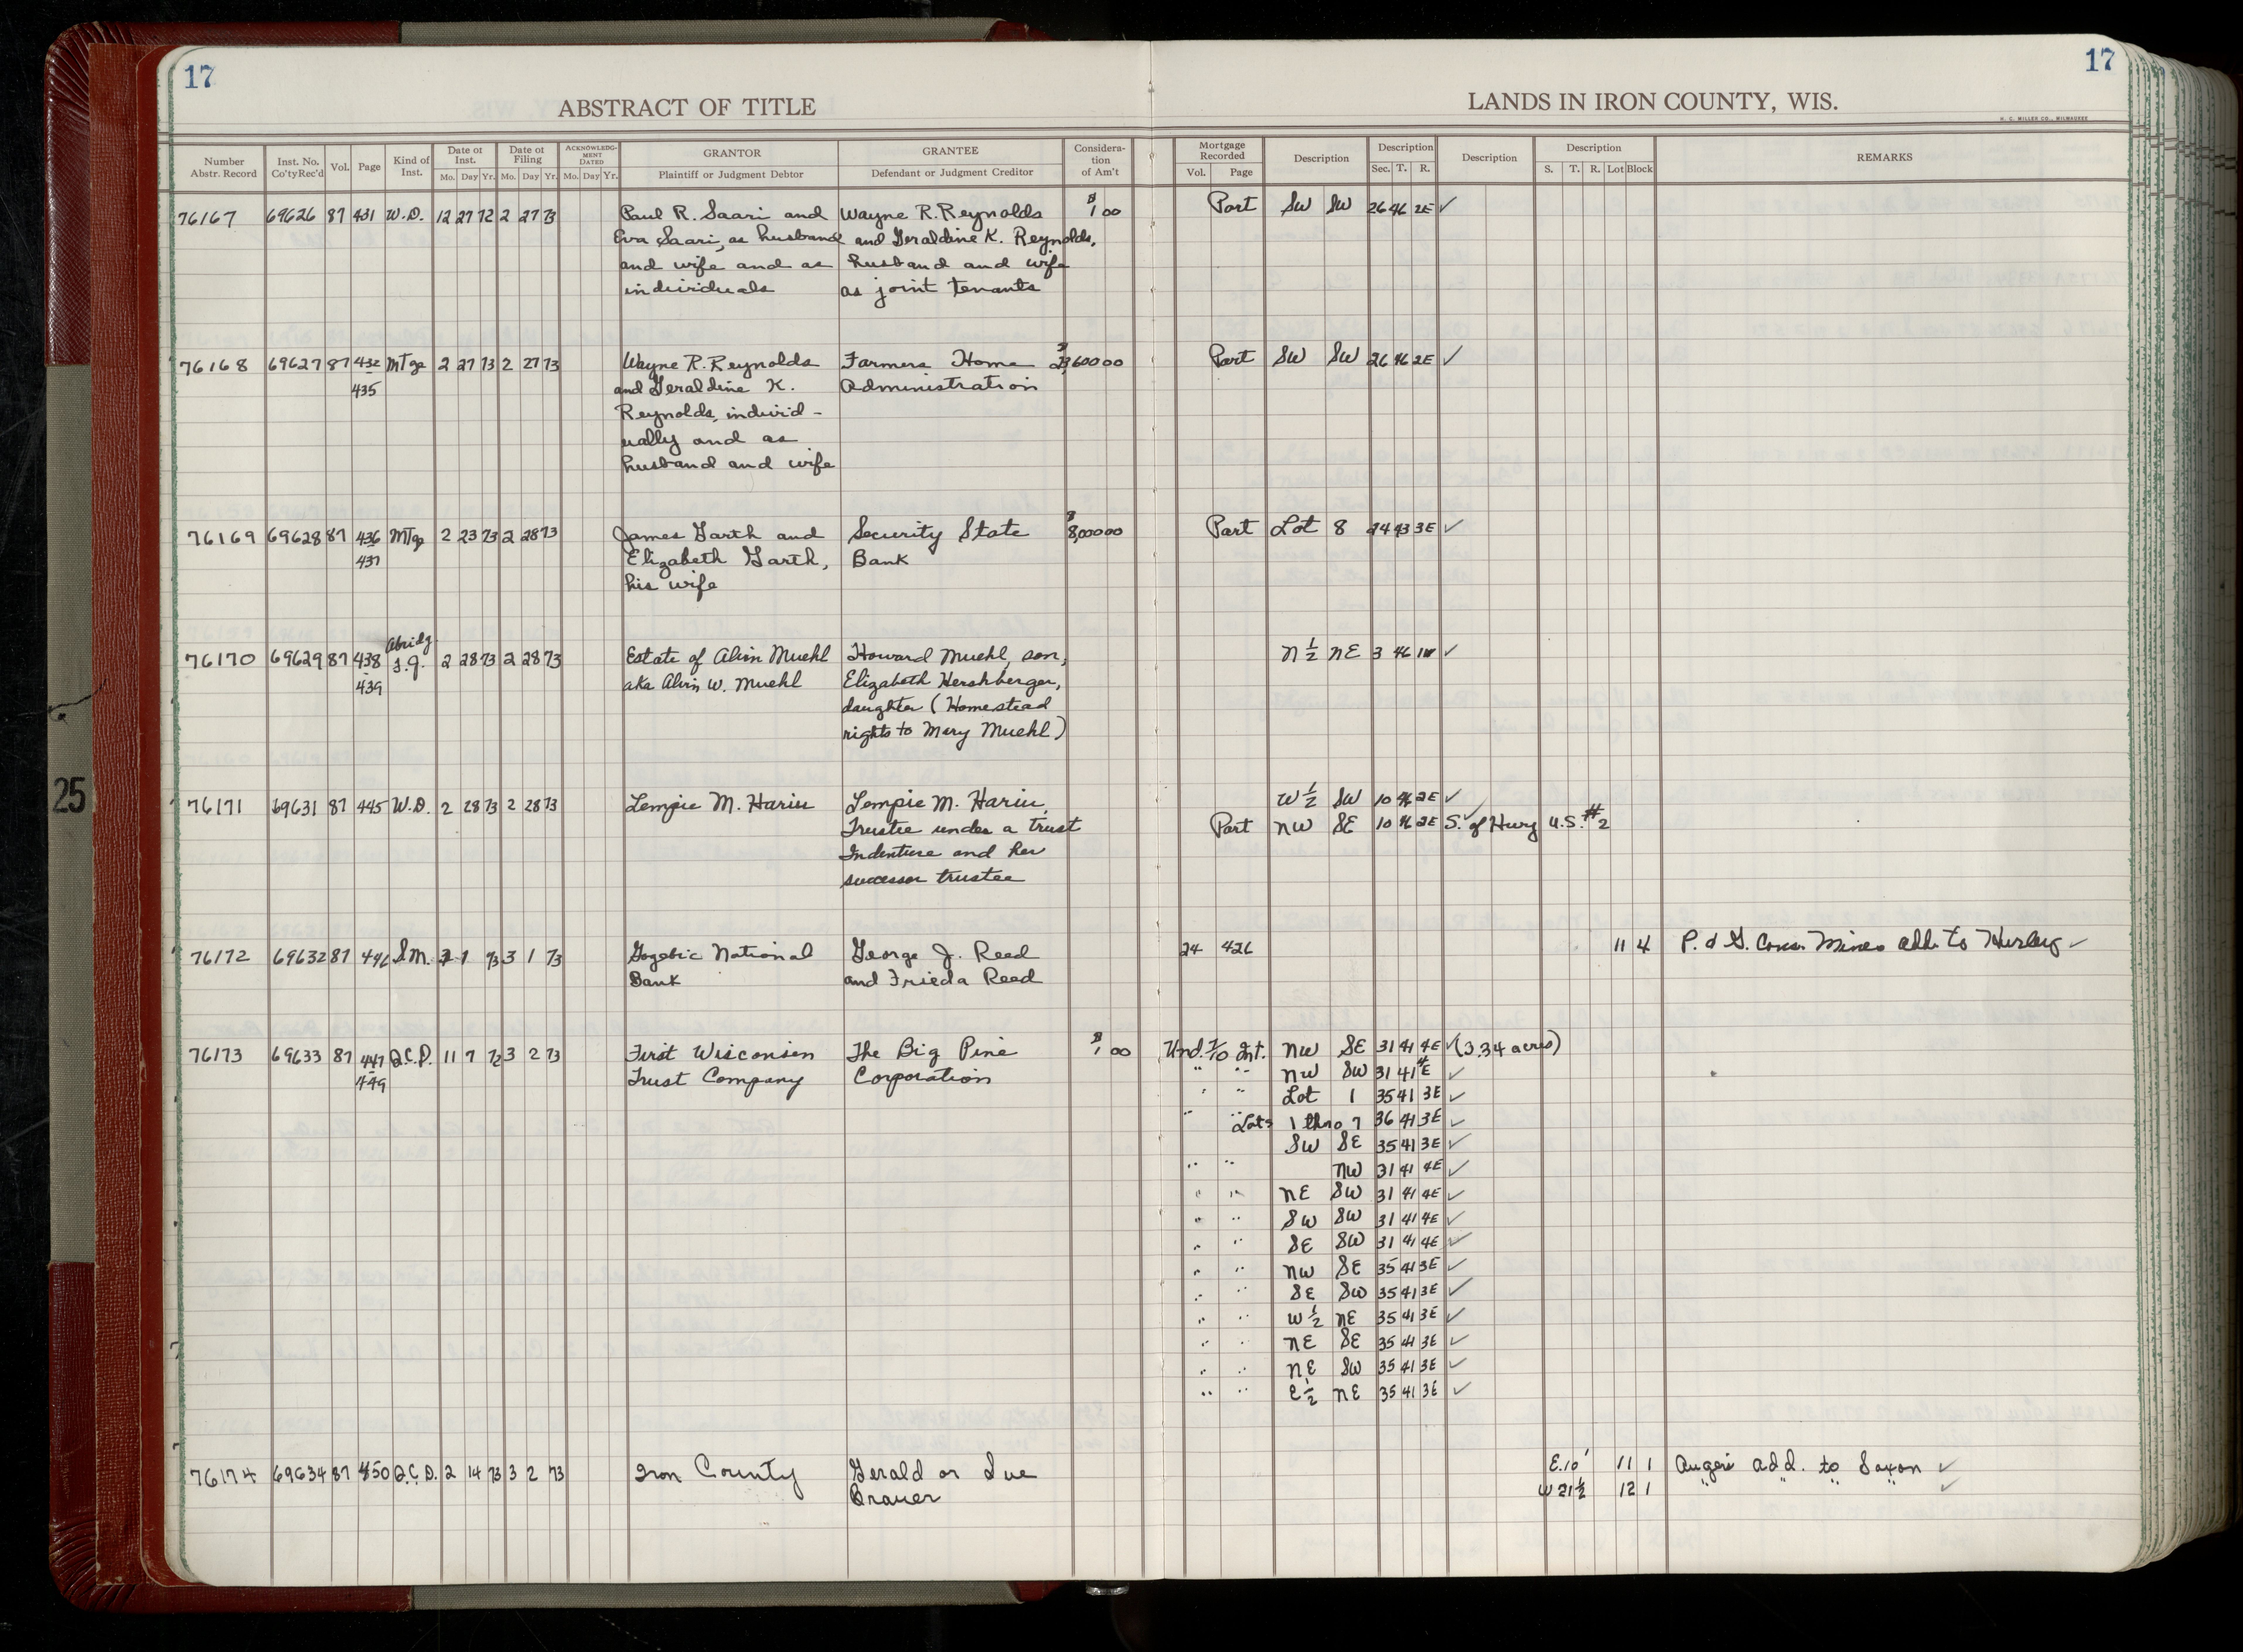 17
17
ABSTRACT OF TITLE
LANDS IN IRON COUNTY, WIS.
H. C. MILLER CO., MILWAUKEE
Number Abstr. Record Inst. No. Co'ty Rec'd Vol. Page Kind of Inst. Date of Inst. Mo. Day Yr. Date of Filing Mo. Day Yr. ACKNOWLEDGMENT DATED Mo. Day Yr. GRANTOR Plaintiff or Judgment Debtor GRANTEE Defendant or Judgment Creditor Consideration of Am't Mortgage Recorded Vol. Page Description Description Sec. T. R. Description Description S. T. R. Lot Block REMARKS
76167 69626 87 431 W.D. 12 27 72 2 27 73 Paul R. Saari and Wayne R. Reynolds $1 00 Part SW SW 26 46 2E ✓
Eva Saari, as husband and Geraldine K. Reynolds,
and wife and as husband and wife
individuals as joint tenants
76168 69627 87 432 Mtge 2 27 73 2 27 73 Wayne R. Reynolds Farmers Home 600 00 Part SW SW 26 46 2E ✓
435 and Geraldine K. Administration
Reynolds, individ-
ually and as
husband and wife
76169 69628 87 436 Mtge 2 23 73 2 28 73 James Garth and Security State $8,000 00 Part Lot 8 43 3E ✓
437 Elizabeth Garth, Bank
his wife
Abridg.
76170 69629 87 438 F.J. 2 28 73 2 28 73 Estate of Alvin Muehl Howard Muehl, son, N½ NE 3 46 1W ✓
439 aka Alvin W. Muehl Elizabeth Hershberger,
daughter (Homestead
rights to Mary Muehl)
76171 69631 87 445 W.D. 2 28 73 2 28 73 Lempie M. Hariu Lempie M. Hariu, W½ SW 10 46 2E ✓
Trustee under a trust Part NW SE 10 46 2E ✓ S. of Hwy U.S. #2
Indenture and her
successor trustee
76172 69632 87 446 S.M. 3 1 73 3 1 73 Gogebic National George J. Reed 24 426 11 4 P. & G. Cons. Mines add. to Hurley ✓
Bank and Frieda Reed
76173 69633 87 447 Q.C.D. 11 7 72 3 2 73 First Wisconsin The Big Pine $1 00 Und. Int. NW SE 31 41 4E ✓ (3.34 acres)
449 Trust Company Corporation " " NW SW 31 41 4E ✓
" " Lot 1 35 41 3E ✓
" " Lots 1 thro 7 36 41 3E ✓
SW SE 35 41 3E ✓
" " NW 31 41 4E ✓
" " NE SW 31 41 4E ✓
" " SW SW 31 41 4E ✓
" " SE SW 31 41 4E ✓
" " NW SE 35 41 3E ✓
" " SE SW 35 41 3E ✓
" " W½ NE 35 41 3E ✓
" " NE SE 35 41 3E ✓
" " NE SW 35 41 3E ✓
" " E½ NE 35 41 3E ✓
76174 69634 87 450 Q.C.D. 2 14 73 3 2 73 Iron County Gerald or Sue E.10' 11 1 add. to Saxon ✓
Brauer W 21½ 12 1 " " " " ✓
25